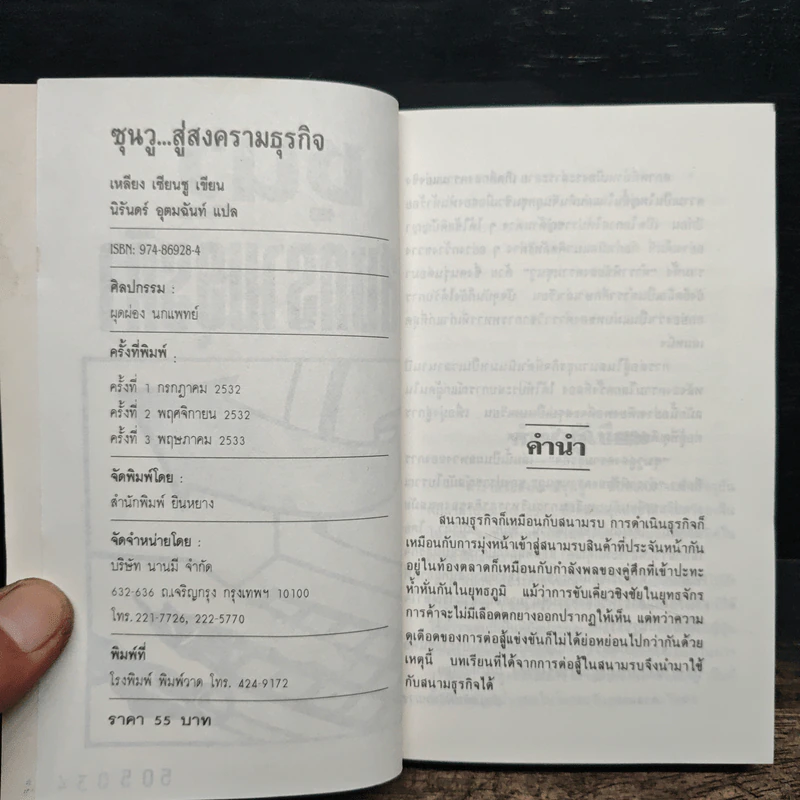 ซุนวู...สู่สงครามธุรกิจ
เหลียง เซียนซู เขียน
นิรันดร์ อุตมฉันท์ แปล
ISBN: 974-86928-4
ศิลปกรรม :
ผุดผ่อง นกแพทย์
ครั้งที่พิมพ์ :
ครั้งที่ 1 กรกฎาคม 2532
ครั้งที่ 2 พฤศจิกายน 2532
ครั้งที่ 3 พฤษภาคม 2533
จัดพิมพ์โดย :
สำนักพิมพ์ ยินหยาง
จัดจำหน่ายโดย :
บริษัท นานมี จำกัด
632-636 ถ.เจริญกรุง กรุงเทพฯ 10100
โทร. 221-7726, 222-5770
พิมพ์ที่
โรงพิมพ์ พิมพ์วาด โทร. 424-9172
ราคา 55 บาท
คำนำ
สนามธุรกิจก็เหมือนกับสนามรบ การดำเนินธุรกิจก็
เหมือนกับการมุ่งหน้าเข้าสู่สนามรบสินค้าที่ประจันหน้ากัน
อยู่ในท้องตลาดก็เหมือนกับกำลังพลของคู่ศึกที่เข้าปะทะ
ห้ำหั่นกันในยุทธภูมิ แม้ว่าการขับเคี่ยวชิงชัยในยุทธจักร
การค้าจะไม่มีเลือดตกยางออกปรากฏให้เห็น แต่ทว่าความ
ดุเดือดของการต่อสู้แข่งขันก็ไม่ได้ย่อหย่อนไปกว่ากันด้วย
เหตุนี้ บทเรียนที่ได้จากการต่อสู้ในสนามรบจึงนำมาใช้
กับสนามธุรกิจได้